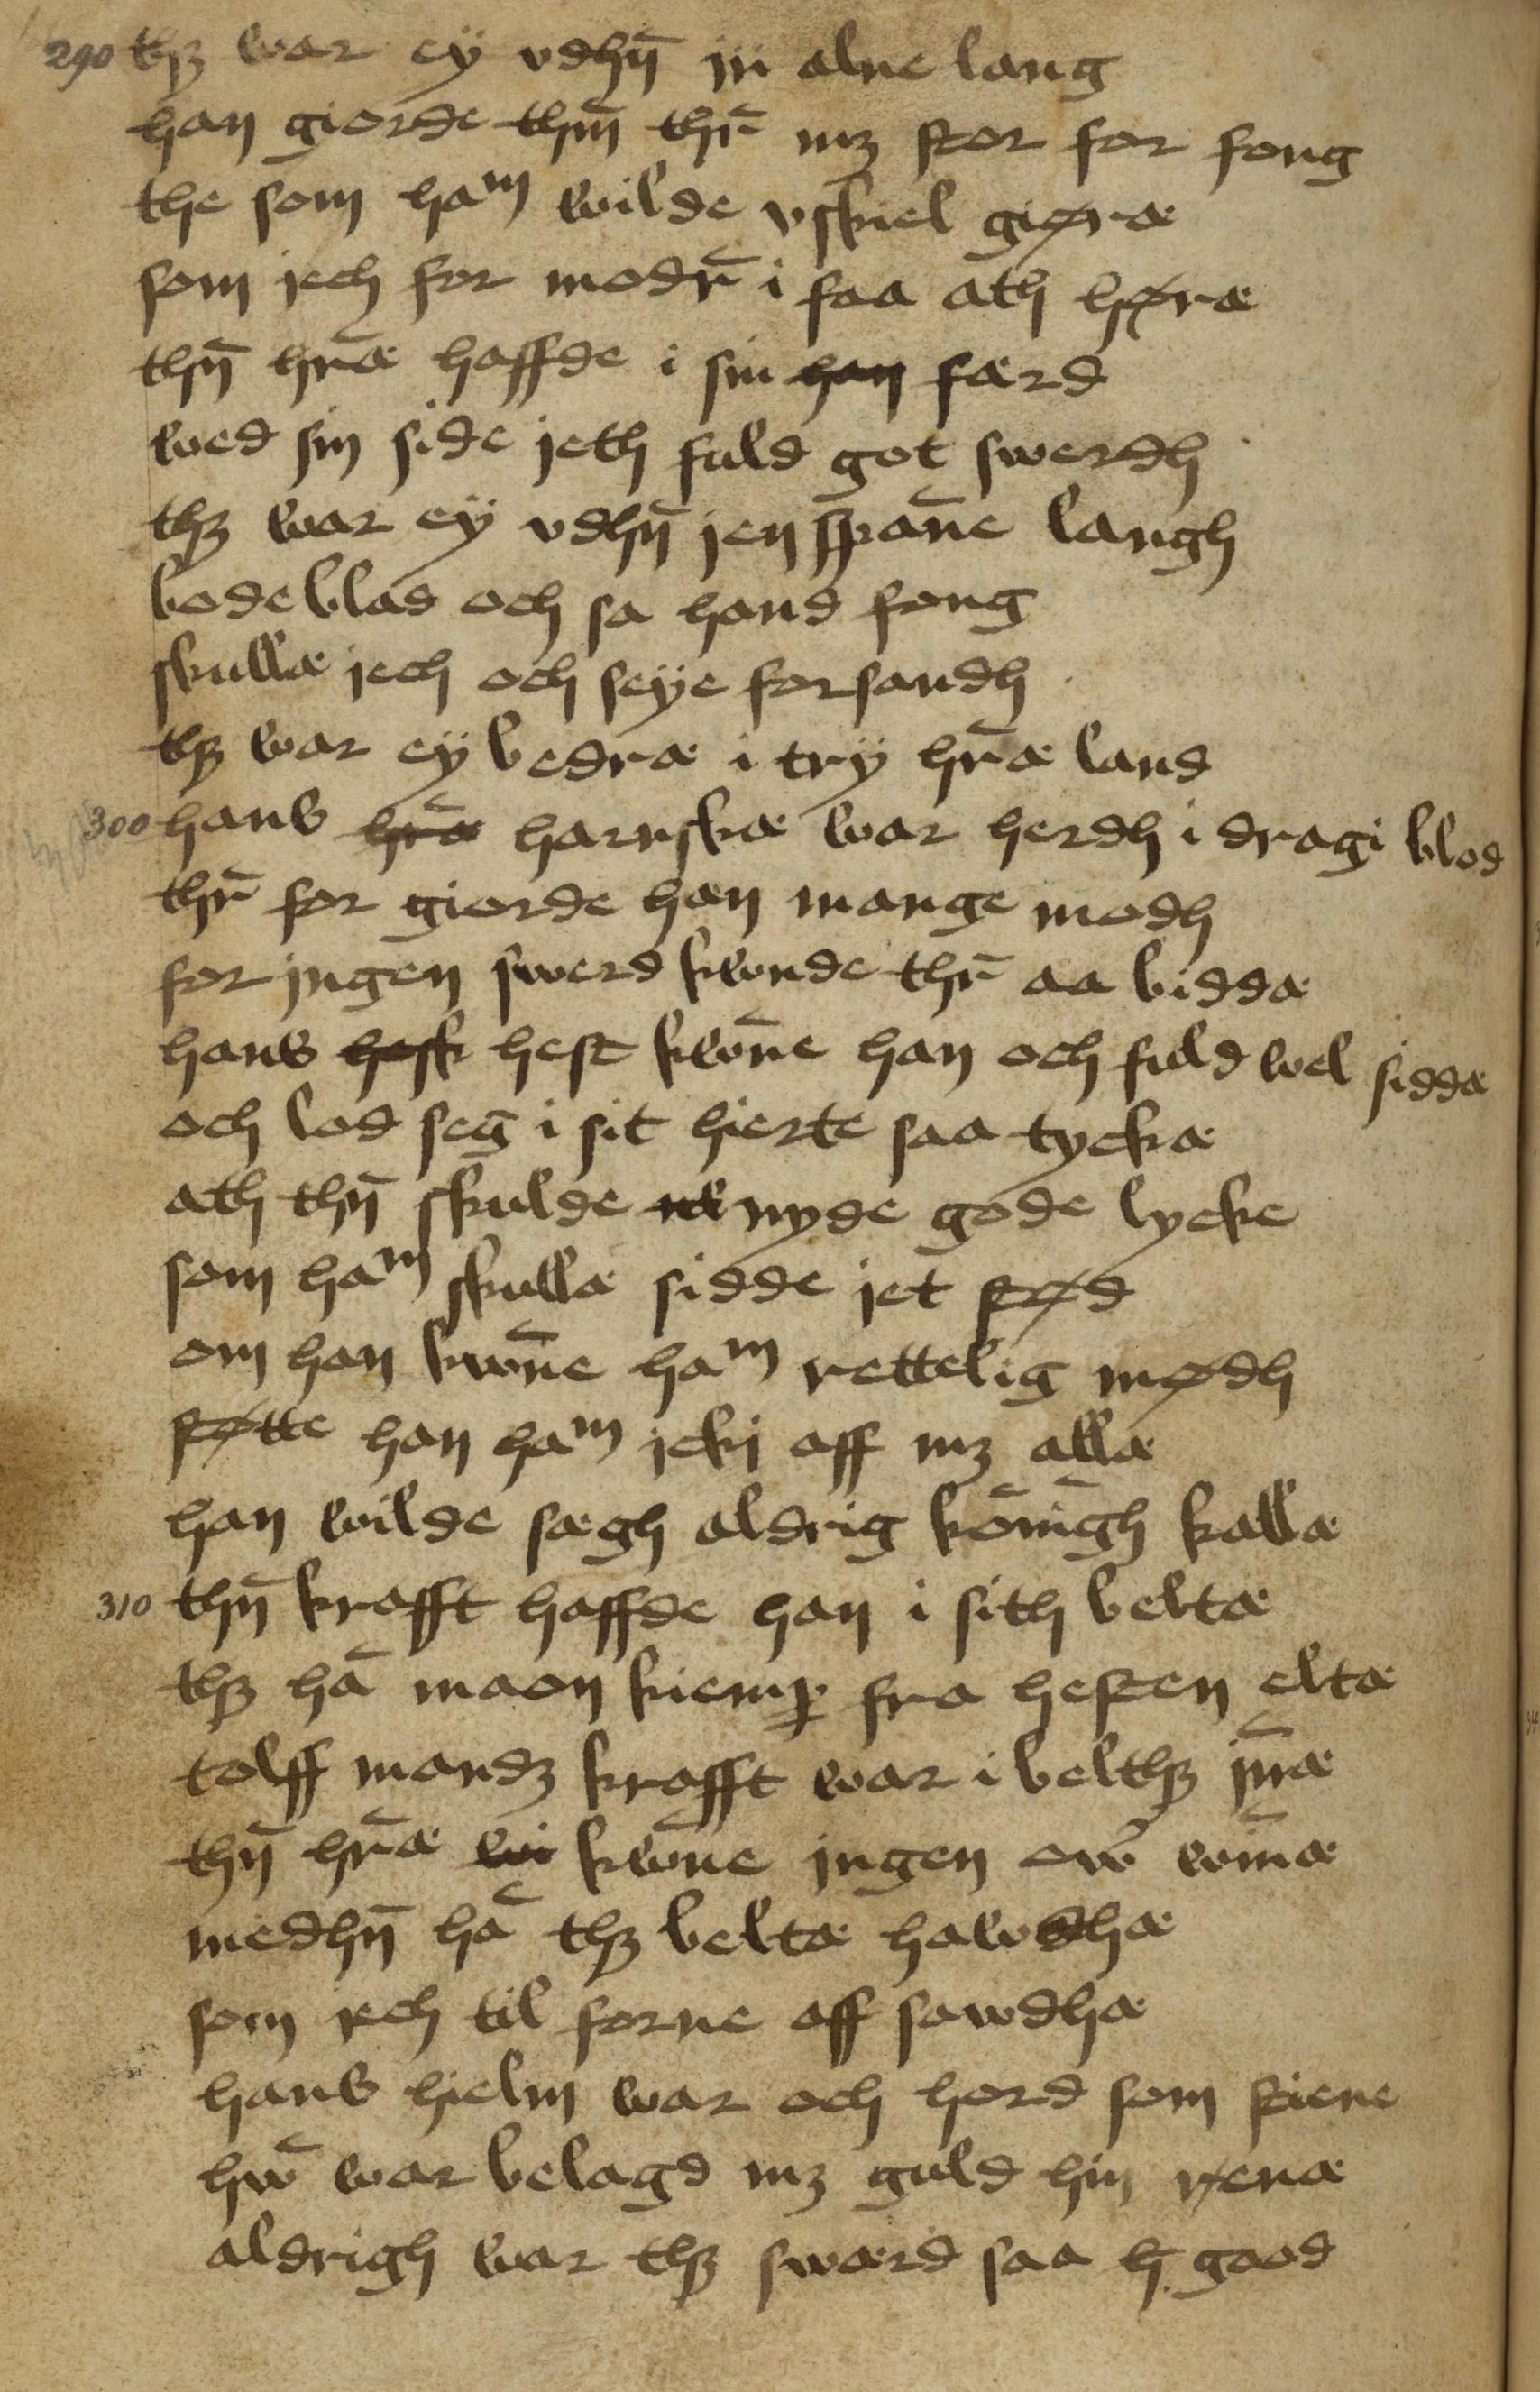 290 thꝫ war eÿ vdhn̄ iii alne lang
han giorde thm̄ thr̄ mꝫ stor for fong
the som haᵐ wilde vskiel giøræ
som jech for modr̄ i faa ath høræ
thn̄ hr̄æ haffde i sin han færd
wed sin side jeth fuld got swerdh
thꝫ war eÿ vdhn̄ jen span̄e langh
bode blad och sa hand fong
skullæ jech och seÿe forsandh
thꝫ war eÿ bedræ i trÿ hr̄æ land
300 hans hr̄æ harnskæ war herdh i dragi blod
thr̄ for giorde han mange modh
for jngen swerd kwnde thr̄ aa biddæ
hans hesk hest kwn̄e han och fuld wel siddæ
och lod seg i sit hierte saa tyckæ
ath thn̄ skulde nyde gode lycke
som haᵐ skullæ sidde jet stød
om han kwn̄e haᵐ rettelig mødh
støtte han haᵐ icki aff mꝫ allæ
han wilde sægh aldrig kōnīgh kallæ
310 thn̄ krafft haffde han i sith beltæ
thꝫ hā maon kiemꝑ fra hesten eltæ
tolff mandꝫ krafft war i belthꝫ jn̄æ
thn̄ hr̄æ wi kwn̄e jngen ow̄ win̄æ
medhn̄ hā thꝫ beltæ hawdhæ
som jech til forne aff sawdhæ
hans hielm war och hord som stiene
hw̄ war belagd mꝫ guld hin rienæ
aldrigh war thꝫ swærd saa h gaod